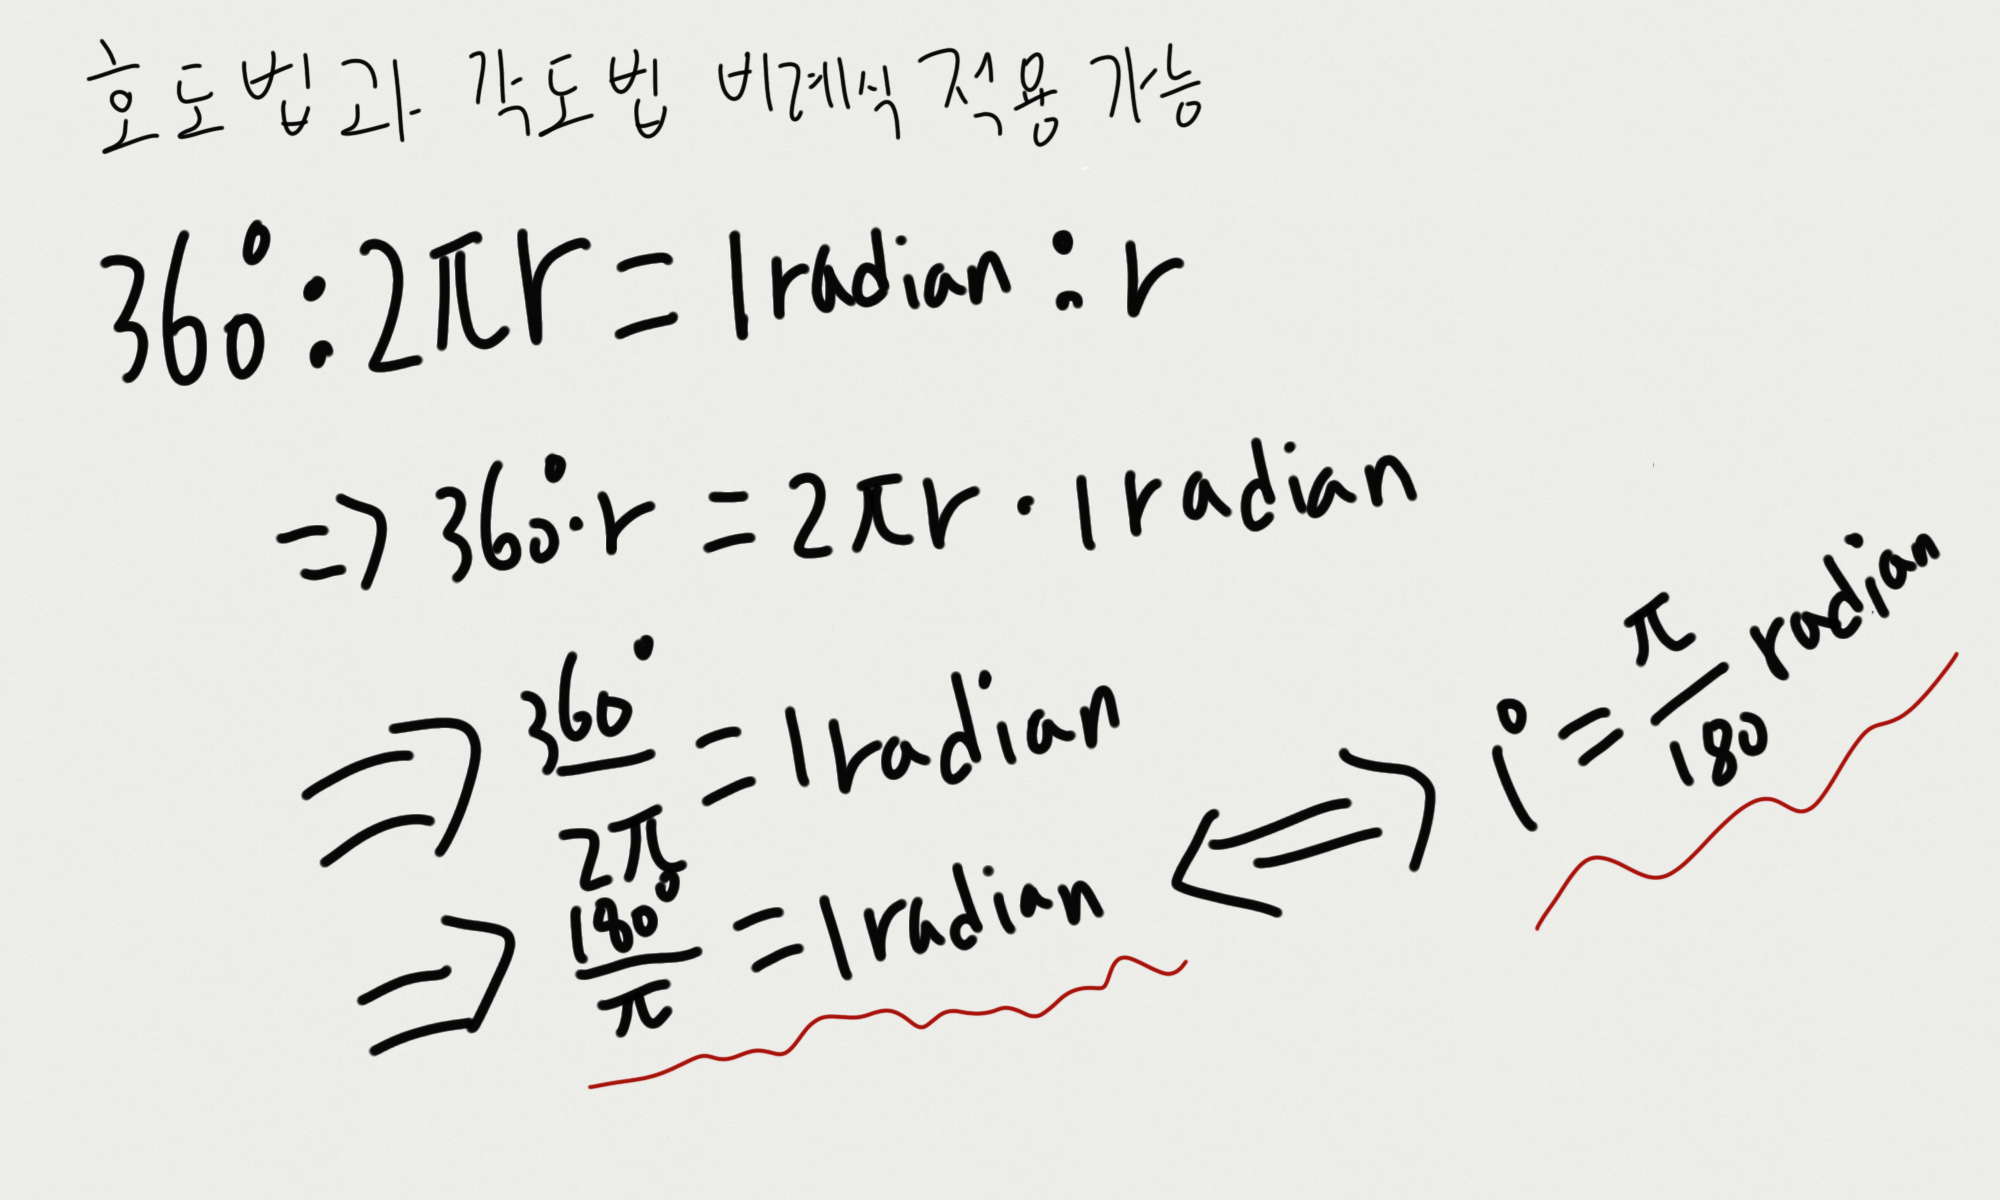 호도법과 각도법 비례식 적용 가능
360° : 2πr = 1 radian : r
⇒ 360° · r = 2πr · 1 radian
⇒ 360°/2π = 1 radian
⇒ 180°/π = 1 radian ⇔ 1° = π/180 radian